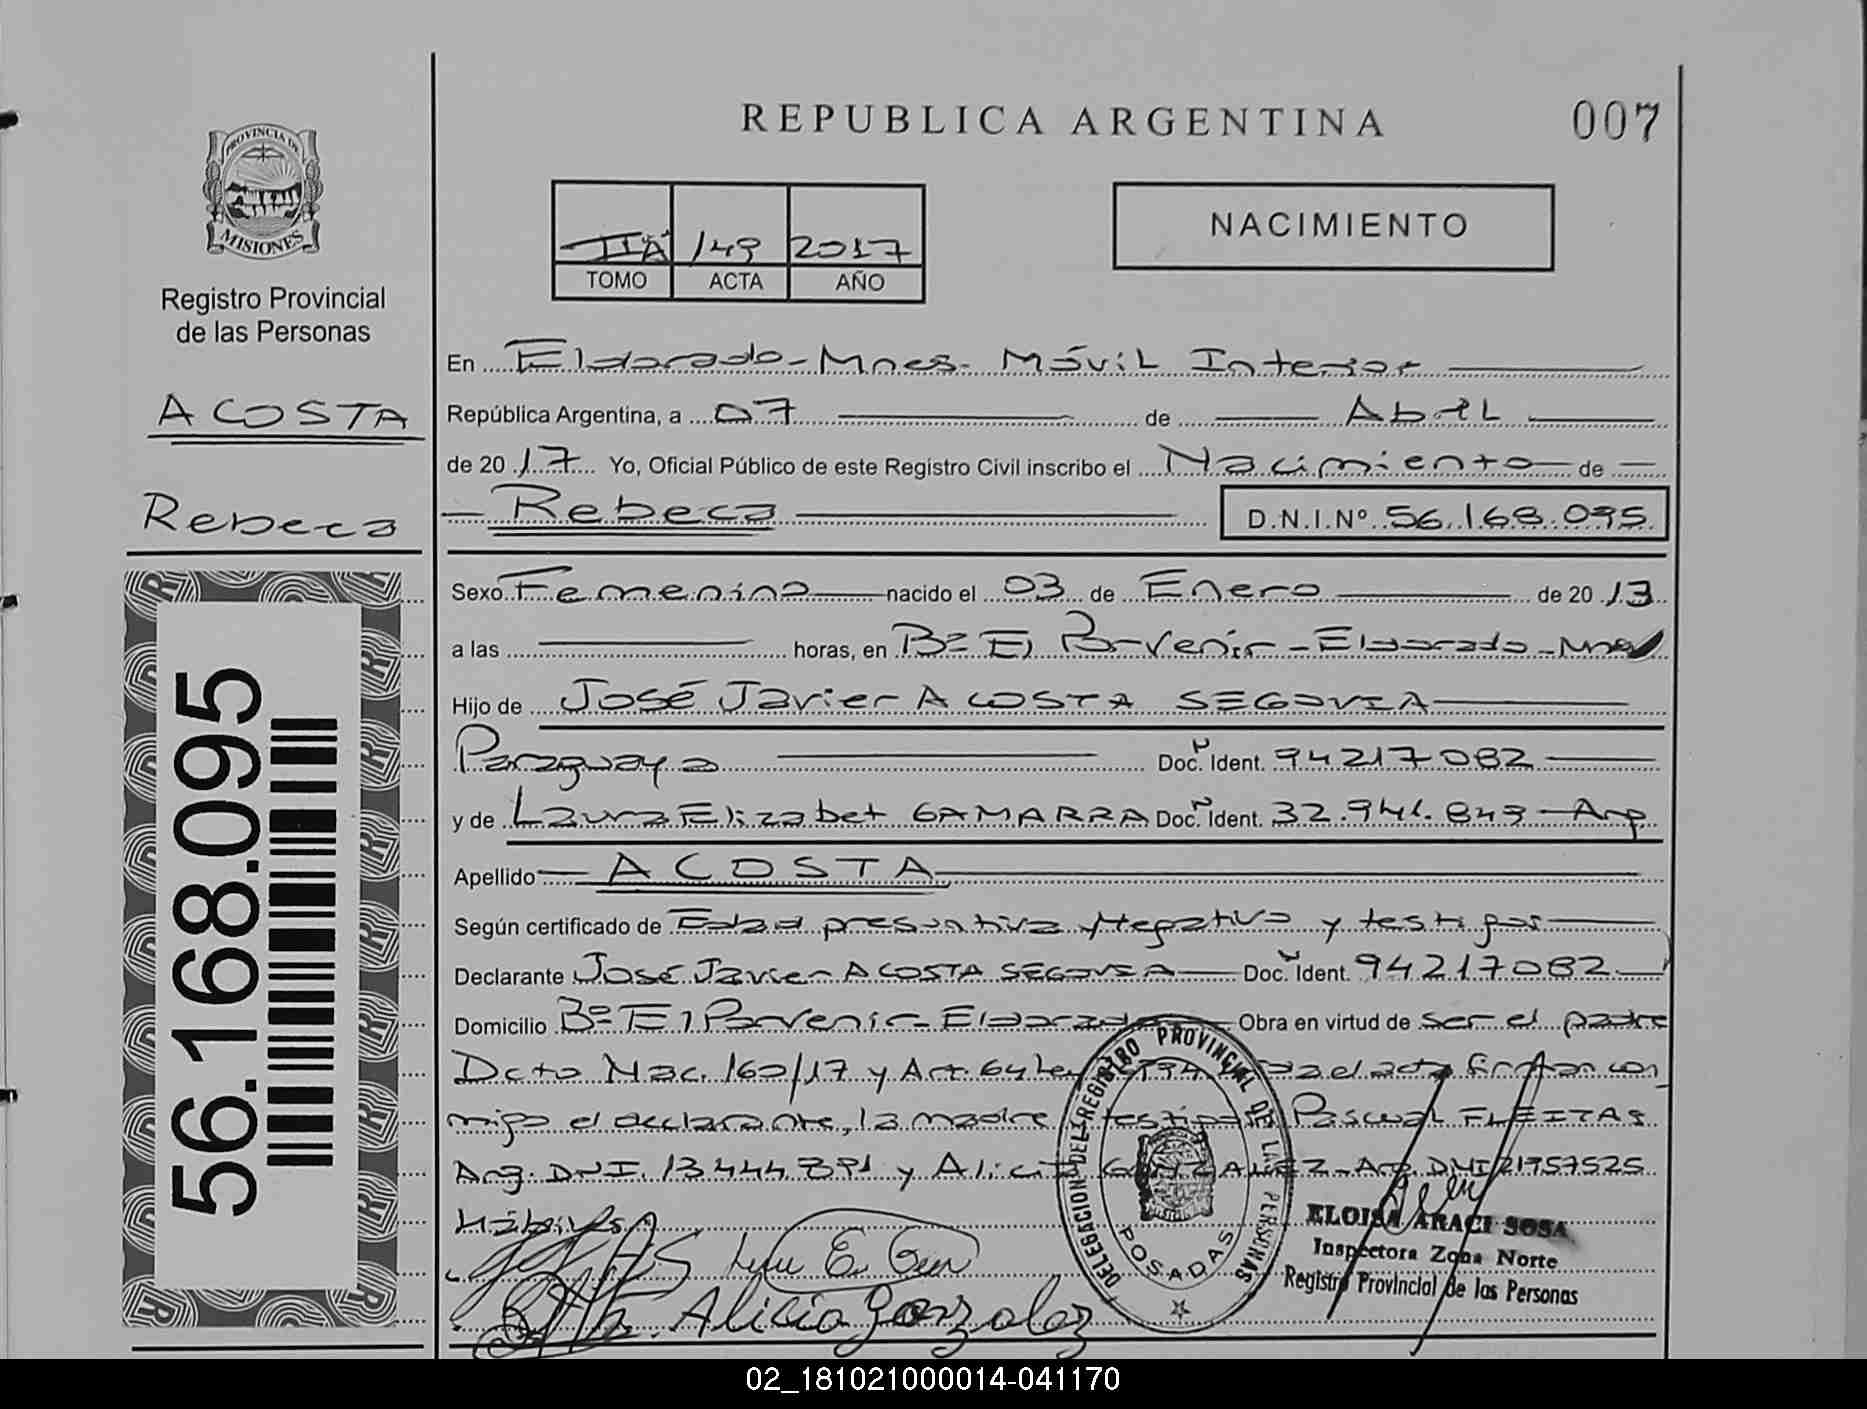 REPUBLICA ARGENTINA
007
PROVINCIA DE
MISIONES
Registro Provincial
de las Personas
ACOSTA
Rebeca
56.168.095
IIA 149 2017
TOMO ACTA AÑO
NACIMIENTO
En Eldorado - Mnes. Móvil Interior
República Argentina, a 07 de Abril
de 2017 Yo, Oficial Público de este Registro Civil inscribo el Nacimiento de
Rebeca D.N.I.Nº 56.168.095
Sexo Femenino nacido el 03 de Enero de 2013
a las horas, en Bº El Porvenir - Eldorado - Mnes
Hijo de José Javier ACOSTA SEGOVIA
Paraguaya Doc. Ident. 94217082
y de Laura Elizabet GAMARRA Doc. Ident. 32.941.849 - Arg.
Apellido ACOSTA
Según certificado de Edad presuntiva y Negativo y testigos
Declarante José Javier ACOSTA SEGOVIA Doc. Ident. 94217082
Domicilio Bº El Porvenir - Eldorado Obra en virtud de ser el padre
Dcto Nac. 160/17 y Art. 64 Ley el acta firman con
migo el declarante, la madre testigos Pascual FLEITAS
Arg. DNI. 13444391 y Alicia GONZALEZ - Arg. DNI 21957525
Hábiles
Alicia Gonzalez
DELEGACION DEL REGISTRO PROVINCIAL DE LAS PERSONAS
POSADAS
ELOISA ARACI SOSA
Inspectora Zona Norte
Registro Provincial de las Personas
02_181021000014-041170